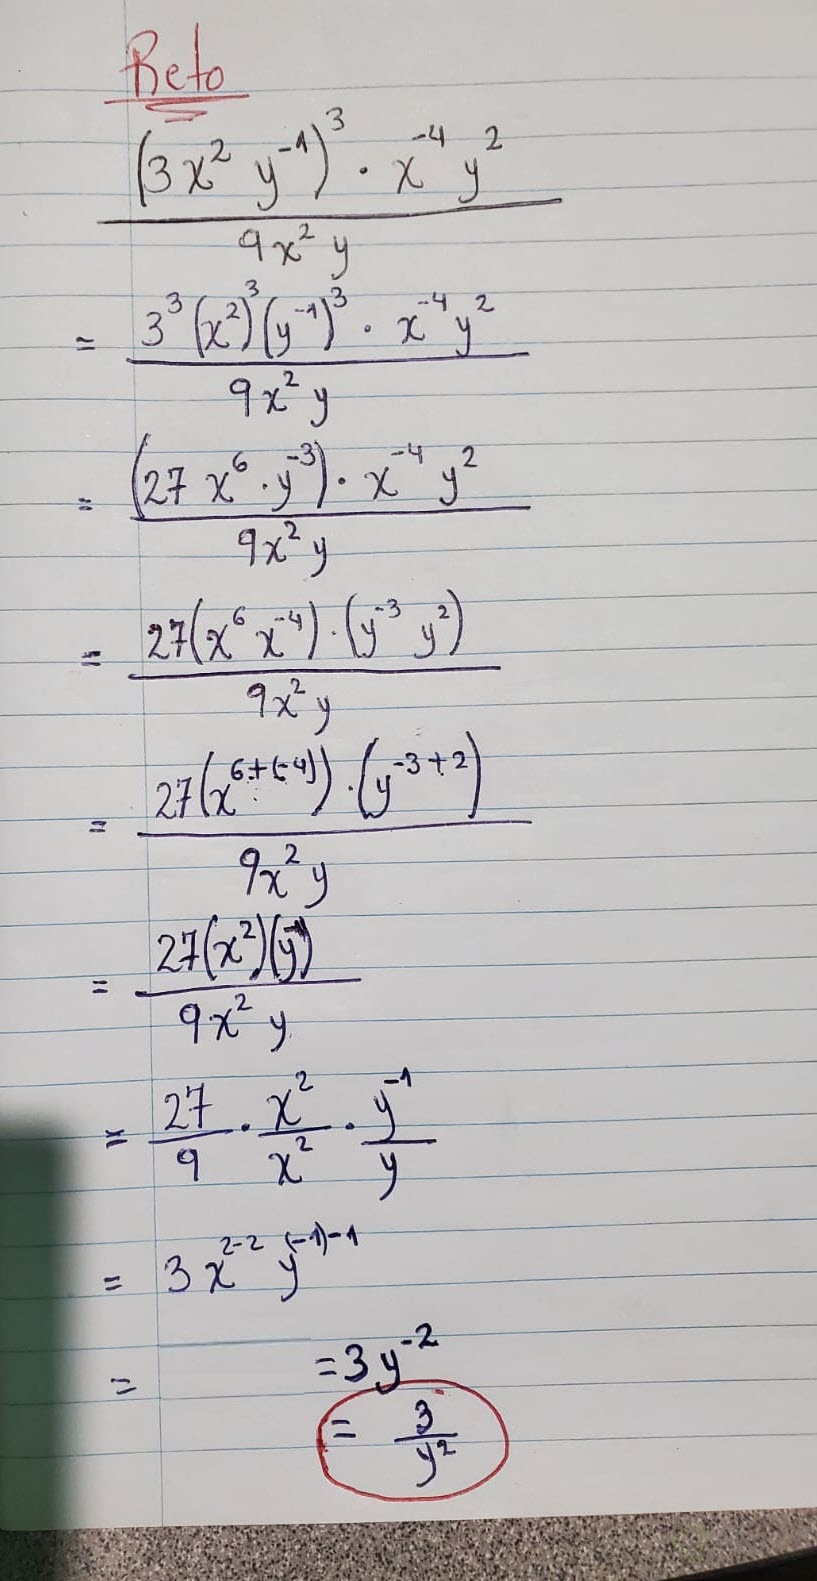 Reto
(3x² y⁻¹)³ · x⁻⁴ y²
9x² y
= 3³ (x²)³ (y⁻¹)³ · x⁻⁴ y²
9x² y
= (27 x⁶ · y⁻³) · x⁻⁴ y²
9x² y
= 27(x⁶ x⁻⁴) · (y⁻³ y²)
9x² y
= 27(x⁶⁺⁽⁻⁴⁾) · (y⁻³⁺²)
9x² y
= 27(x²)(y⁻¹)
9x² y
= 27/9 · x²/x² · y⁻¹/y
= 3x²⁻² y⁽⁻¹⁾⁻¹
= = 3y⁻²
= 3/y²